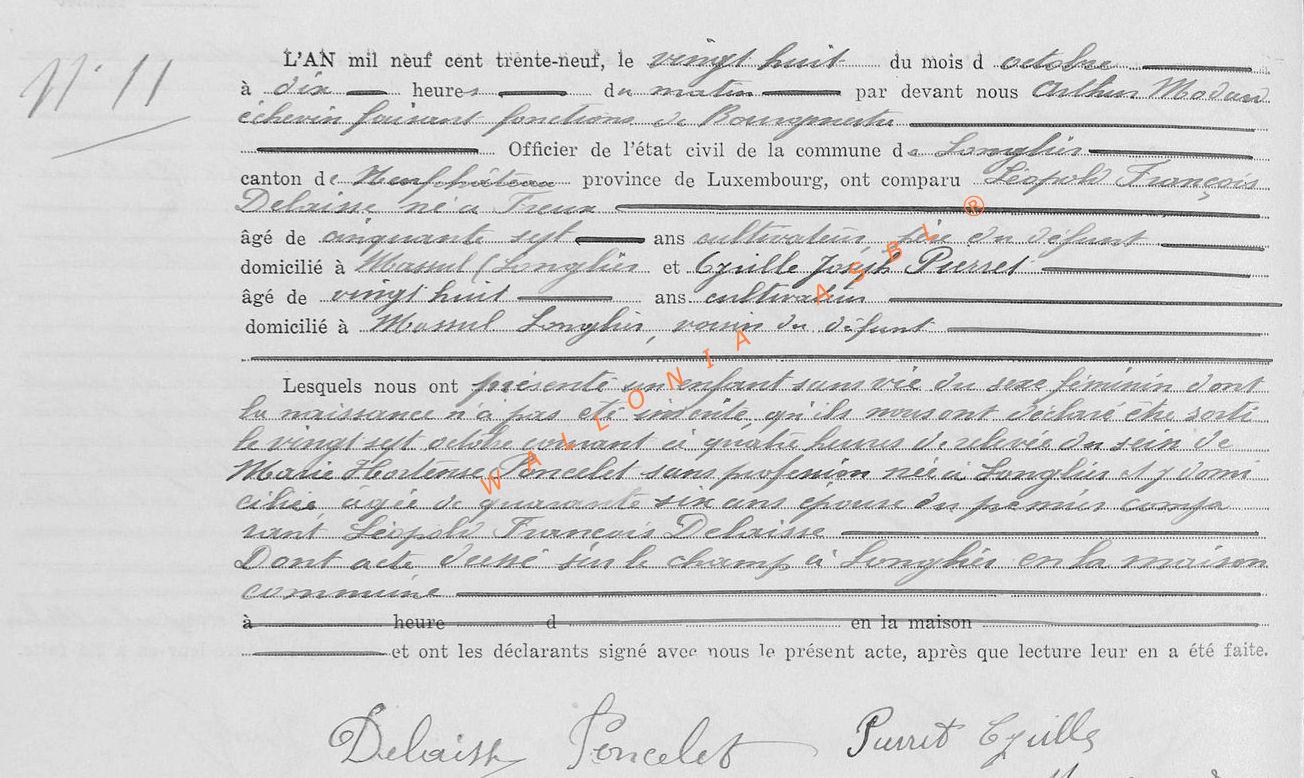 N° 11
L'AN mil neuf cent trente-neuf, le vingt huit du mois d octobre
à dix heures du matin par devant nous Arthur
échevin faisant fonctions de Bourgmestre
Officier de l'état civil de la commune de Longlier
canton de Neufchâteau province de Luxembourg, ont comparu Léopold François
Delaisse né à Freux
âgé de cinquante sept ans cultivateur père du défunt
domicilié à Massul (Longlier et Cyrille Joseph Pierret
âgé de vingt huit ans cultivateur
domicilié à Massul Longlier, voisin du défunt
Lesquels nous ont présenté un enfant sans vie du sexe féminin dont
la naissance n'a pas été inscrite, qu'ils nous ont déclaré être sorti
le vingt sept octobre courant à quatre heures de relevée du sein de
Marie Hortense Poncelet sans profession née à Longlier et y domi
ciliée, agée de quarante six ans épouse du premier compa
rant Léopold François Delaisse
Dont acte dressé sur le champ à Longlier en la maison
commune
à heure d en la maison
et ont les déclarants signé avec nous le présent acte, après que lecture leur en a été faite.
Delaisse Poncelet Pierret Cyrille
WALLONIA ASBL ®